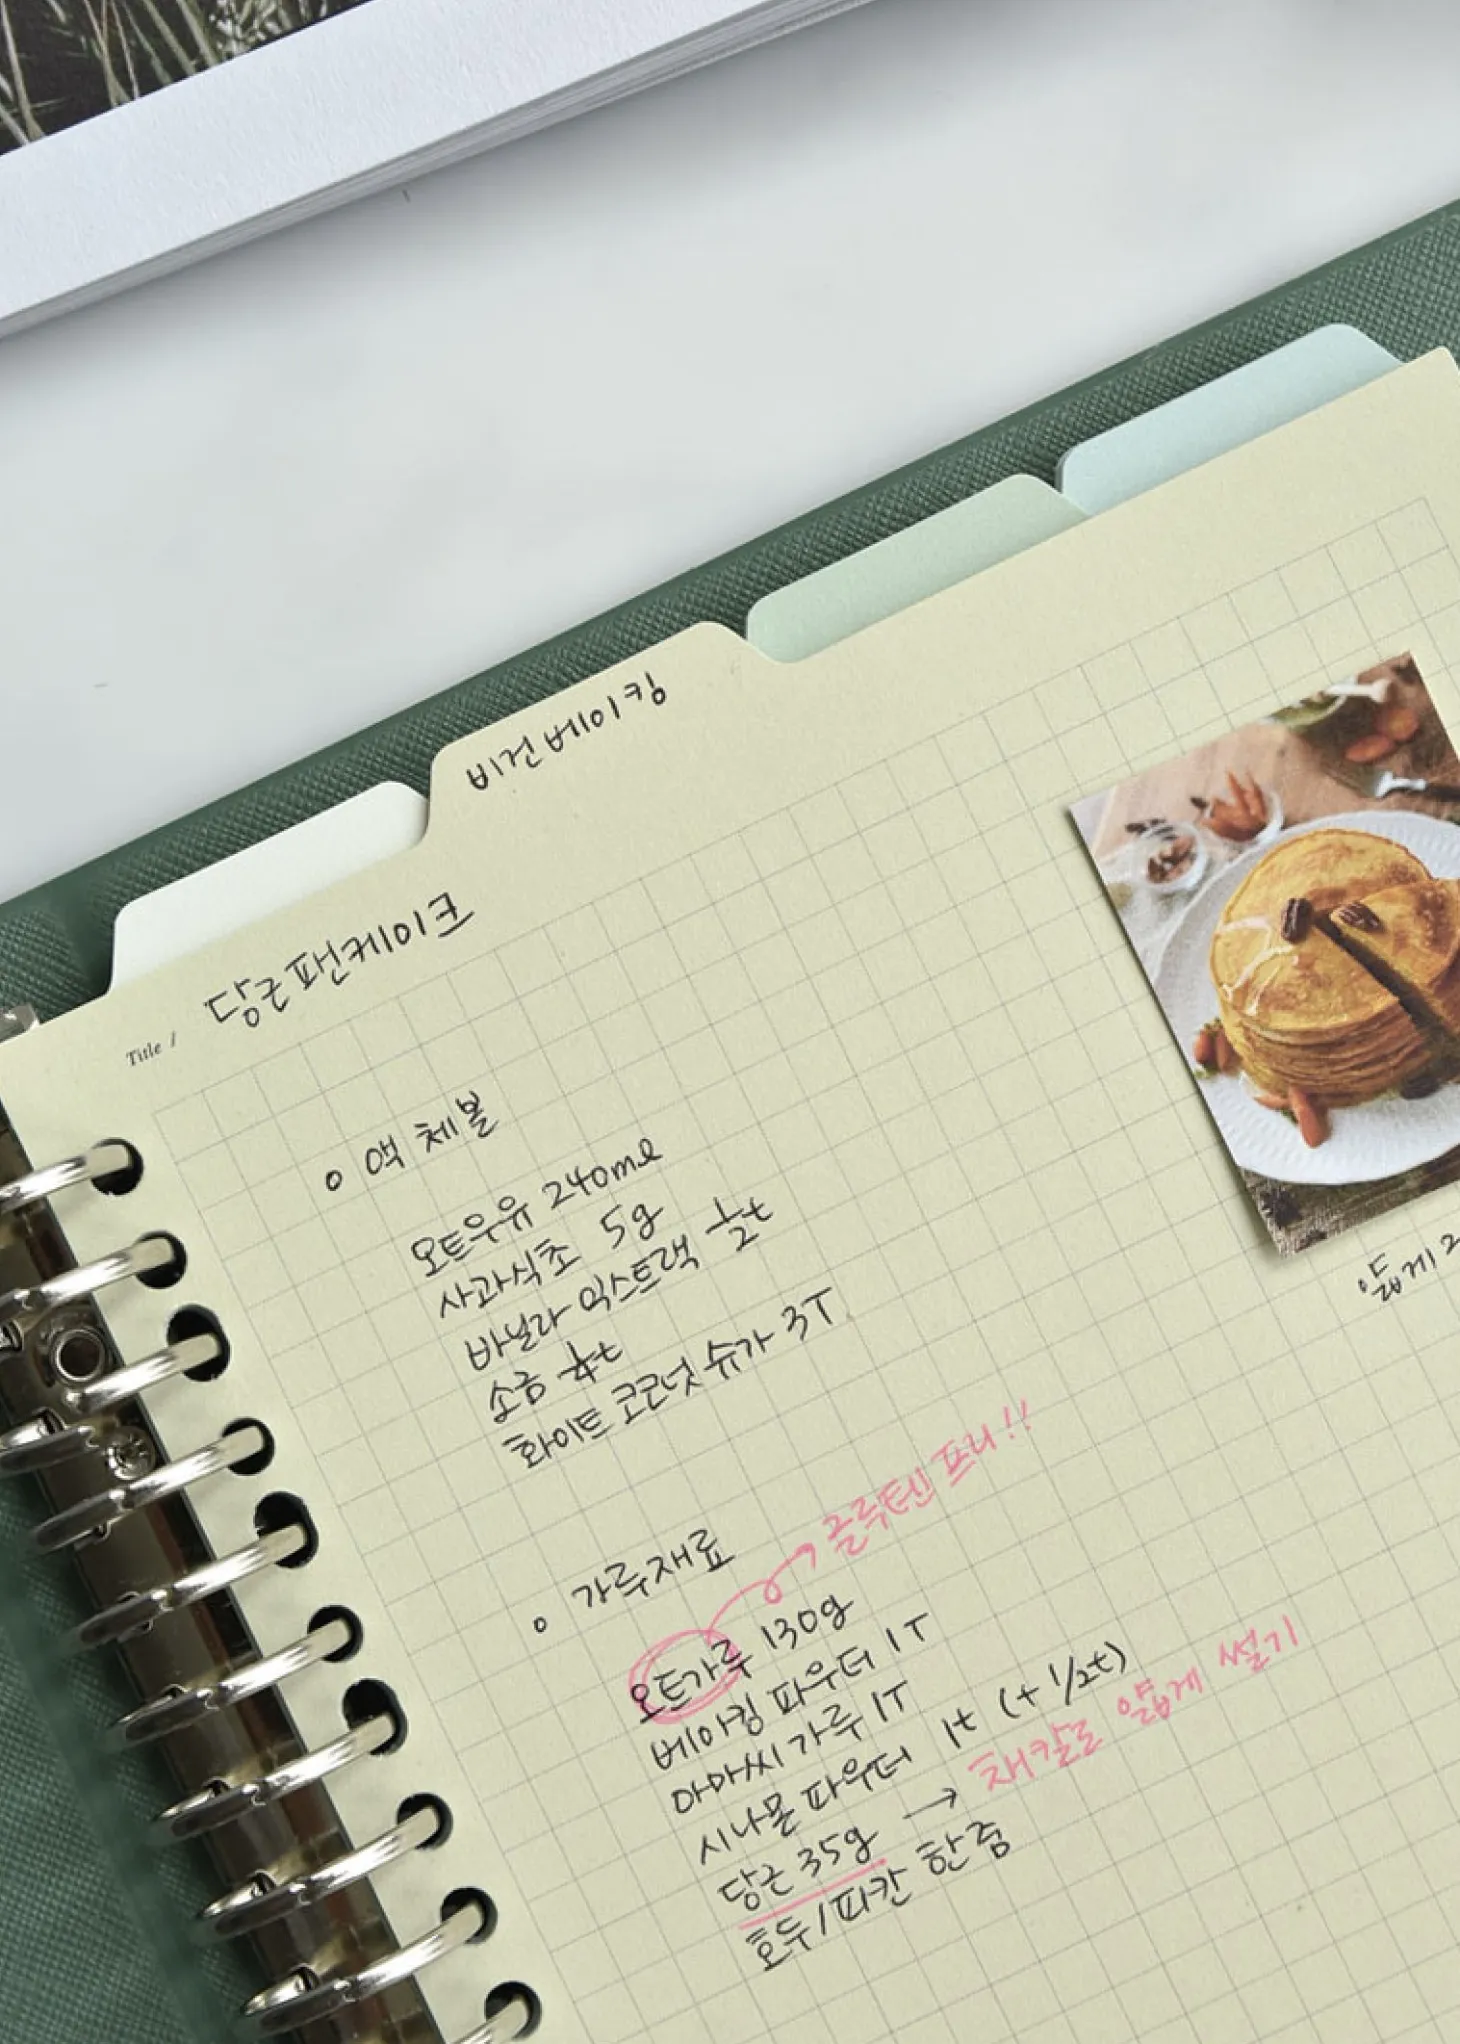 비건 베이킹
Title / 당근 팬케이크
o 액체볼
오트우유 240ml
사과식초 5g
바닐라 익스트랙 1/2t
소금 1/4t
화이트 코코넛 슈가 3T
글루텐 프리!!
o 가루재료
오트가루 130g
베이킹 파우더 1T
아마씨 가루 1T
시나몬 파우더 1t (+ 1/2t)
당근 35g → 채칼로 얇게 썰기
호두/피칸 한 줌
얇게